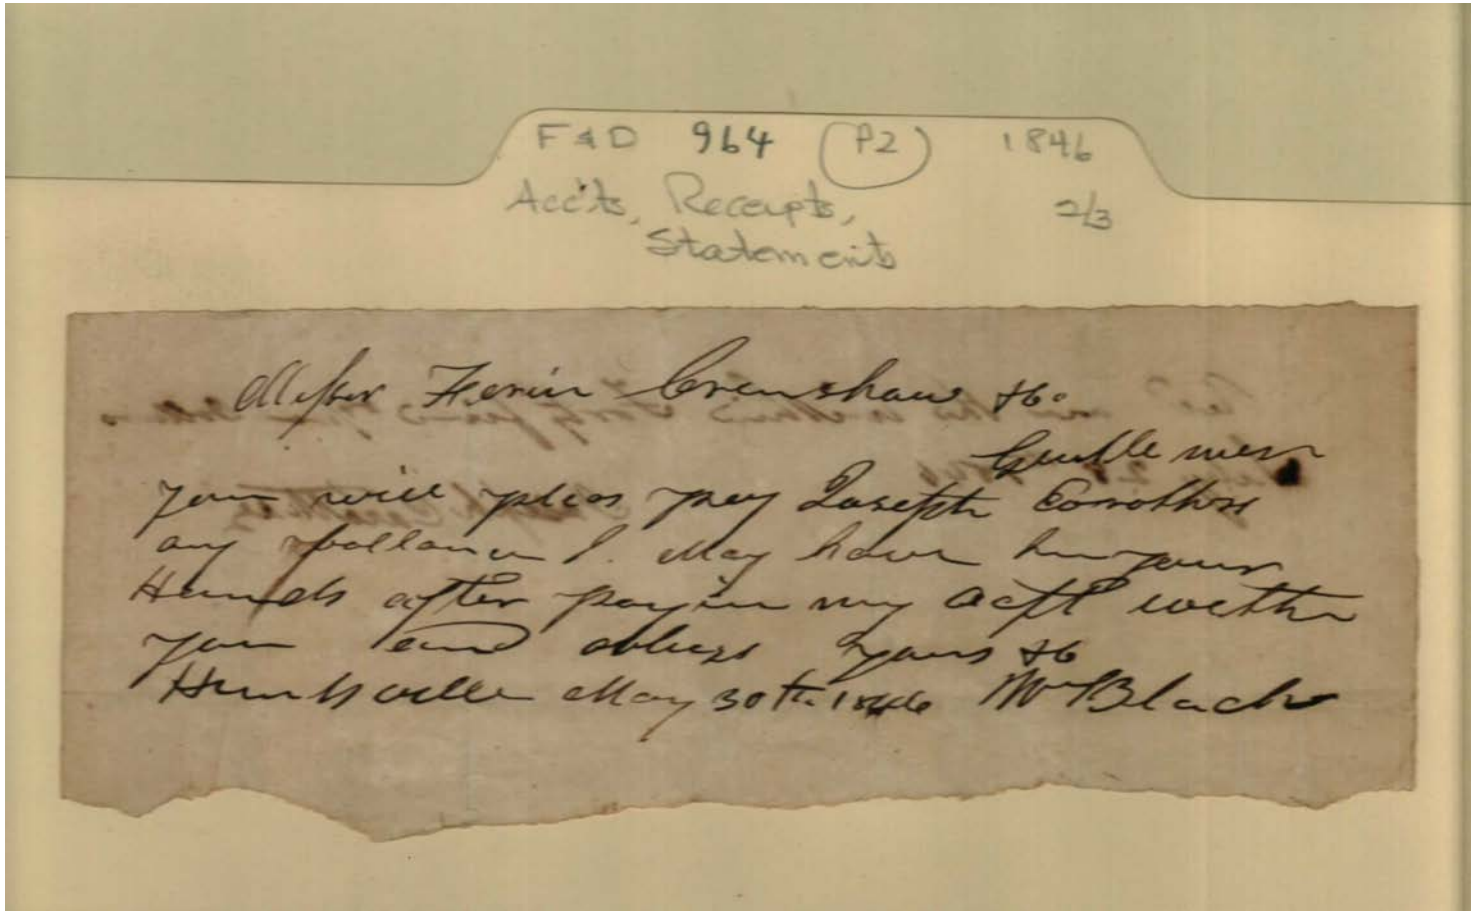 F & D 964 (P2) 1846
Acc'ts, Receipts, 2/3
Statements
Messrs Fearn Crenshaw &Co
Gentlemen
you will pleas pay Joseph Carrothers
any ballance I. May have in your
Hands after payin my acpt with
you and oblige yours &c
Huntsville May 30th 1846 Wm Black